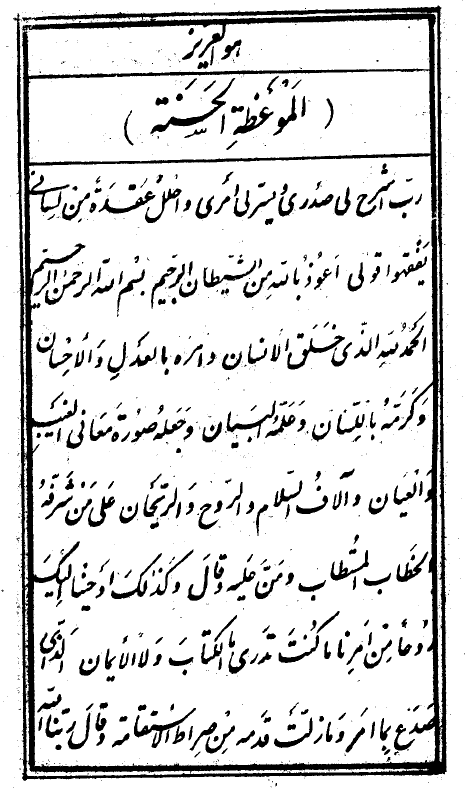 هو العزیز
( المَوْعِظَةِ الحَسَنَة )
ربّ اشرح لی صَدْری و یسّر لی اَمری و احلل عقدةً مِن لِسانی
یَفقهوا قولی اعوذ باللّه مِن الشّیطان الرجیم بسم اللّه الرحمن الرحیم
الحمدُ للّهِ الّذی خَلَقَ الاِنسان و امره بالعَدلِ وَالاِحسان
وَ کَرّمَهُ باللِّسان وَ عَلّمَهُ البَیان وَ جَعَلَهُ صُورَةَ مَعانی الغَیبِ
وَ العَیان و آلافُ السَّلام و الرّوح وَ الرّیحان عَلی مَن شَرّفَهُ
بالخِطاب المُستطاب و مَنّ علیه و قالَ وَ کَذلِکَ اَوحَینا اِلَیکَ
رُوحًا مِن اَمرِنا ما کُنتَ تَدری مَا الکتابَ وَ لا الاِیمان الّذی
صَدَعَ بِما امر وَ ما زلّت قدمه مِن صِراط الاِستقامة و قالَ رَبّنا اللّه